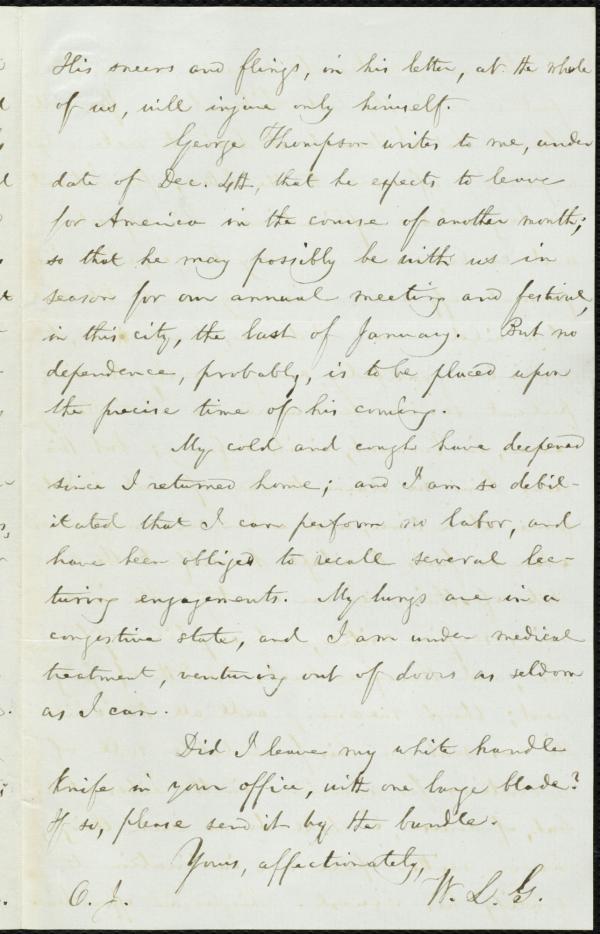 His sneers and flings, in his letter, at the whole
of us, will injure only himself.
George Thompson writes to me, under
date of Dec. 4th, that he expects to leave
for America in the course of another month;
so that he may possibly be with us in
season for our annual meeting and festival,
in this city, the last of January. But no
dependence, probably, is to be placed upon
the precise time of his coming.
My cold and cough have deepened
since I returned home; and I am so debil-
itated that I can perform no labor, and
have been obliged to recall several lec-
turing engagements. My lungs are in a
congestive state, and I am under medical
treatment, venturing out of doors as seldom
as I can.
Did I leave my white handle
knife in your office, with one large blade?
If so, please send it by the bundle.
Yours, affectionately,
O. J. W. L. G.